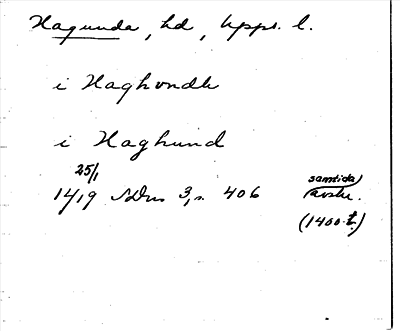 Hagunda, hd, Upps. l.
i Haghondh
i Haghund
25/1
1419 SDns 3, s. 406 samtida avskr.
(1400-t.)